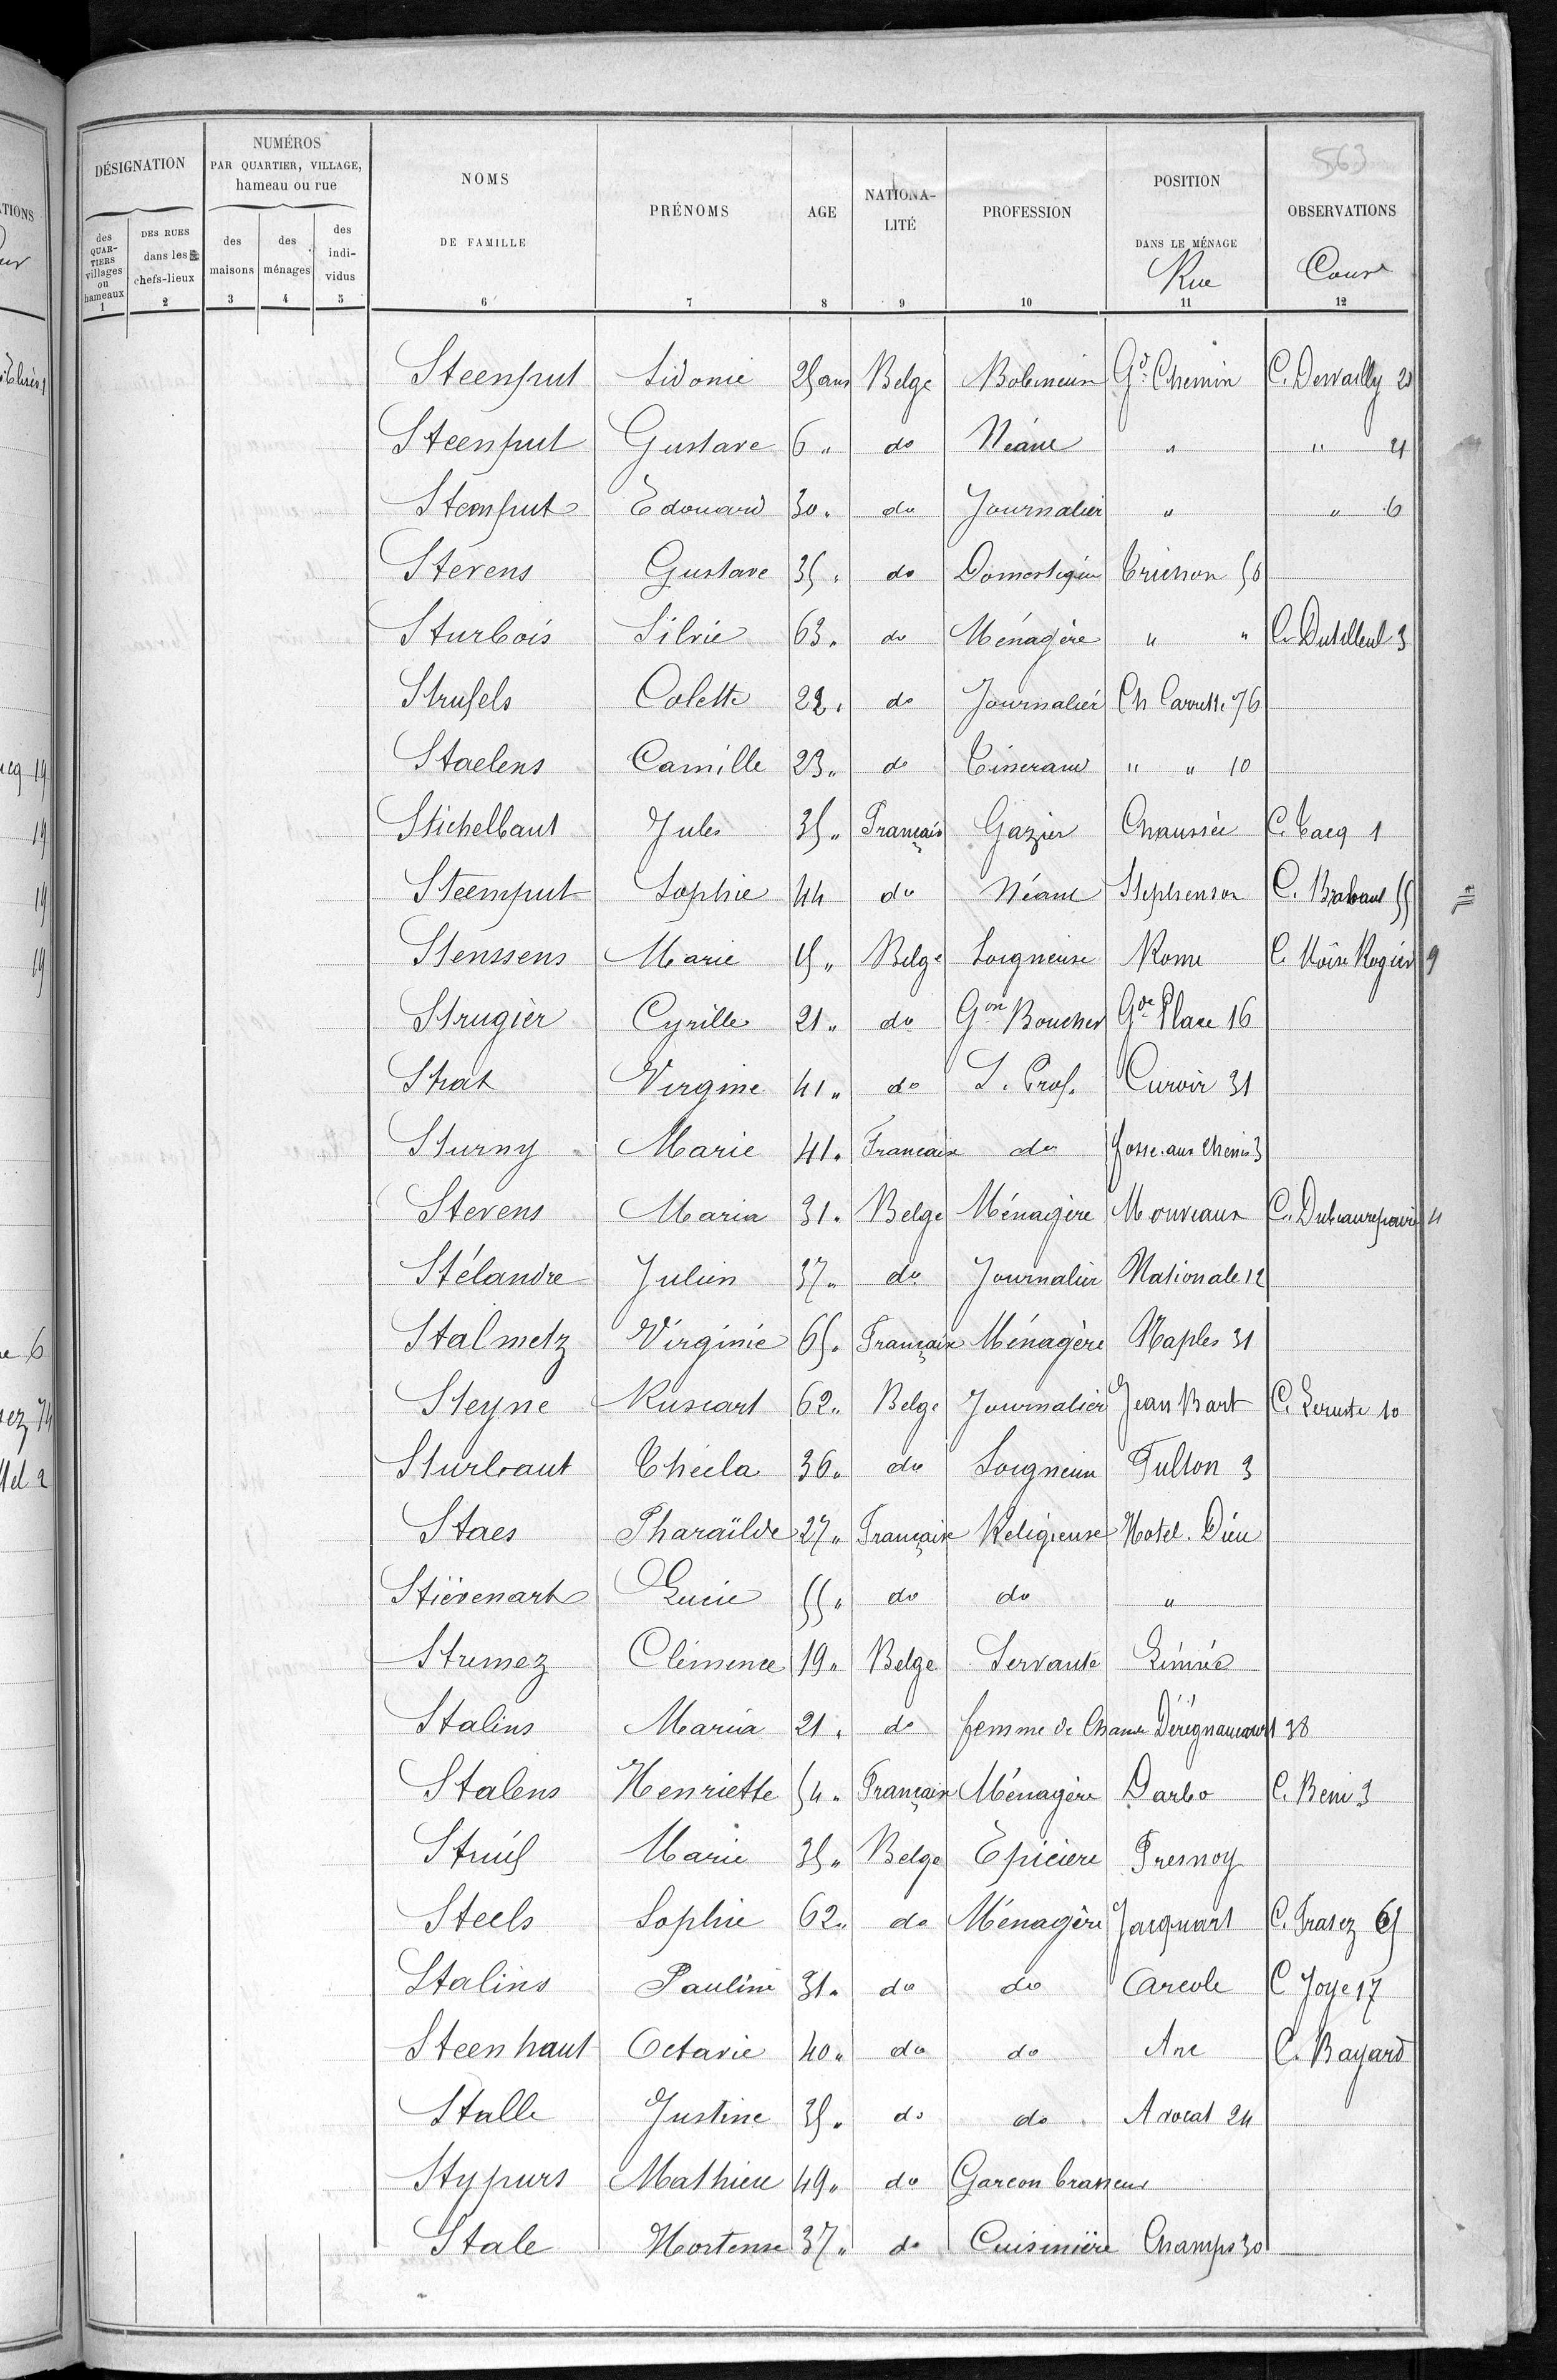 563
DÉSIGNATION
NUMÉROS
PAR QUARTIER, VILLAGE,
hameau ou rue
des QUARTIERS villages ou hameaux 1
DES RUES dans les chefs-lieux 2
des maisons 3
des ménages 4
des individus 5
NOMS DE FAMILLE 6
PRÉNOMS 7
AGE 8
NATIONALITÉ 9
PROFESSION 10
POSITION DANS LE MÉNAGE Rue 11
OBSERVATIONS Cour 12
Steenput Sidonie 25 ans Belge Bobineuse Gd Chemin C. Dervailly 21
Steenput Gustave 6 " do Néant " " 21
Steenput Edouard 30 " do Journalier " " 6
Stevens Gustave 35 " do Domestique Crichon 50
Sturbois Silvie 63 " do Ménagère " " C. Dutilleul 3
Strufels Colette 22 " do Journalier Ch Carrette 76
Staelens Camille 23 " do Tisserand " " 10
Stichelbaut Jules 35 " Français Gazier Chaussée C. Tacq 1
Steemput Sophie 44 do Néant Stephenson C. Brabant 55
Stenssens Marie 15 " Belge Soigneuse Rome C. Moïse Rogier 9
Strugier Cyrille 21 " do Gon Boucher Gde Place 16
Strat Virginie 41 " do S. Prof. Curoir 31
Sturny Marie 41 " Française do fosse aux chenes 3
Stevens Maria 31 " Belge Ménagère Mouveaux C. Dubeaurepaire 4
Stélandre Julien 37 " do Journalier Nationale 12
Stalmetz Virginie 65 " Française Ménagère Naples 31
Steyne Ruscart 62 " Belge Journalier Jean Bart C. Leruste 10
Sturbaut Thécla 36 " do Soigneuse Fulton 3
Staes Pharaïlde 27 " Française Religieuse Hotel. Dieu
Stiévenart Lucie 55 " do do "
Strumez Clémence 19 " Belge Servante Linné
Stalins Maria 21 " do femme de Chambre Dérégnaucourt 38
Stalens Henriette 54 " Française Ménagère Darbo C. Beni 3
Struif Marie 35 " Belge Epicière Fresnoy
Steels Sophie 62 " do Ménagère Jacquart C. Frasez 65
Stalins Pauline 31 " do do Arcole C Joye 17
Steenhaut Octavie 40 " do do Arc C. Bayard
Stalle Justine 35 " do do Avocat 24
Stypurs Mathieu 49 " do Garcon brasseur
Stale Hortense 37 " do Cuisinière Champs 30